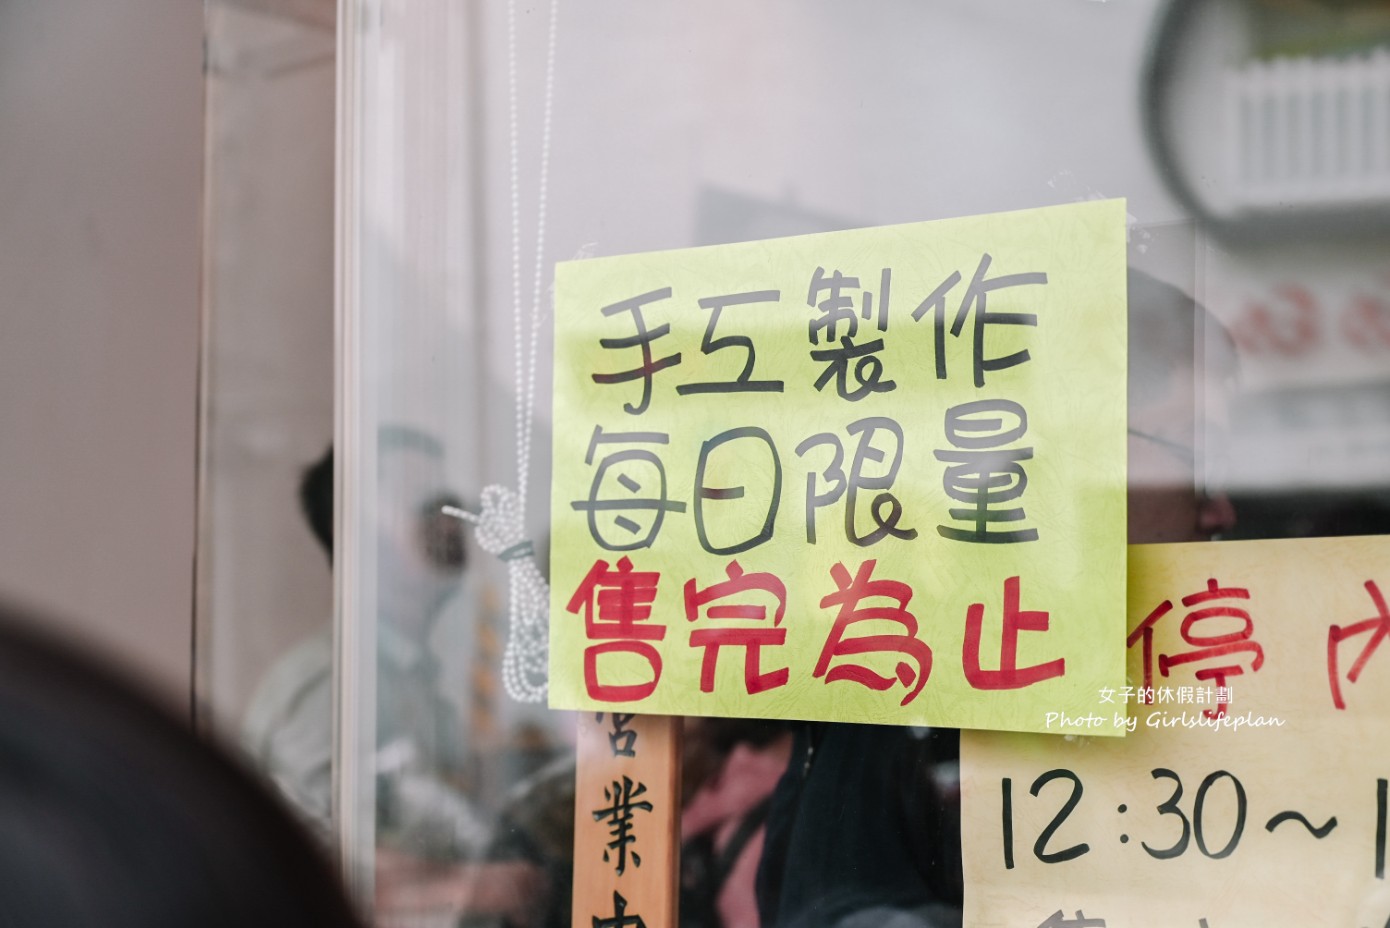 手工製作
每日限量
售完為止
停
女子的休假計劃
Photo by Girlslifeplan
營業中
12:30~1